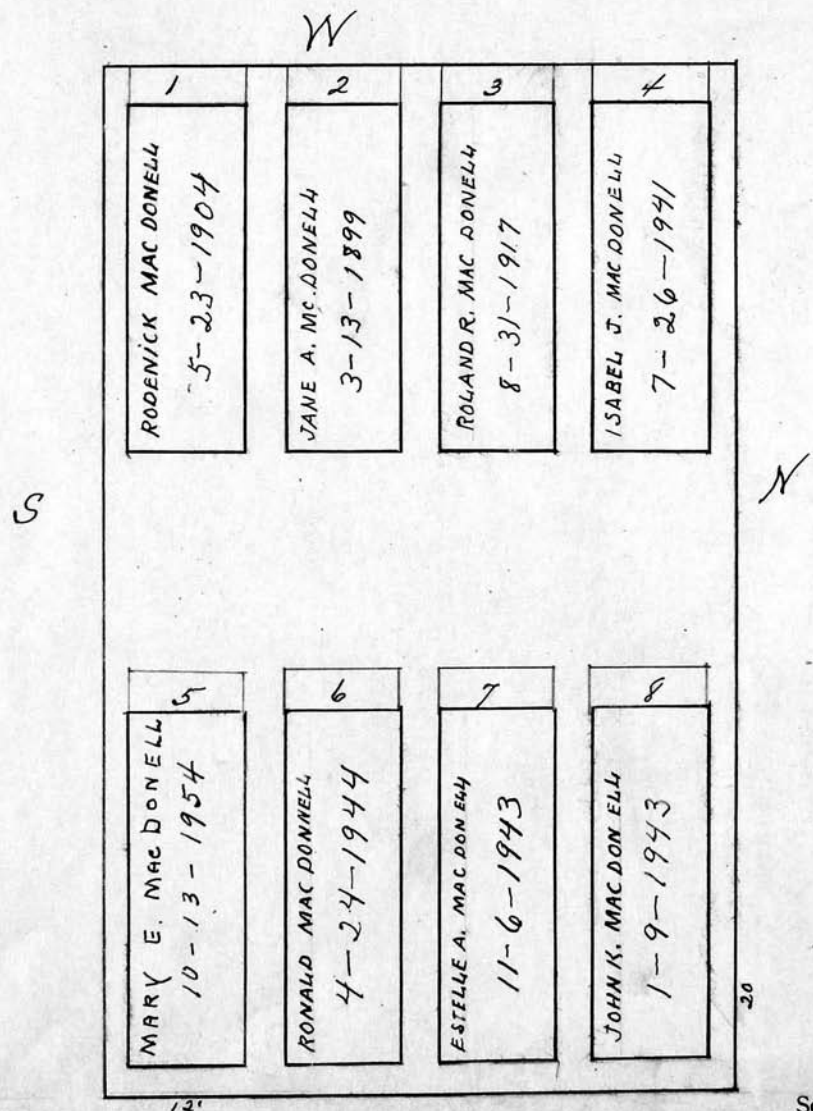 W
1
RODENICK MAC DONELL
5-23-1904
2
JANE A. MC.DONELL
3-13-1899
3
ROLAND R. MAC DONELL
8-31-1917
4
ISABEL J. MAC DONELL
7-26-1941
S
N
5
MARY E. MAC DONELL
10-13-1954
6
RONALD MAC DONNELL
4-24-1944
7
ESTELLE A. MAC DONELL
11-6-1943
8
JOHN K. MAC DONELL
1-9-1943
20
12'